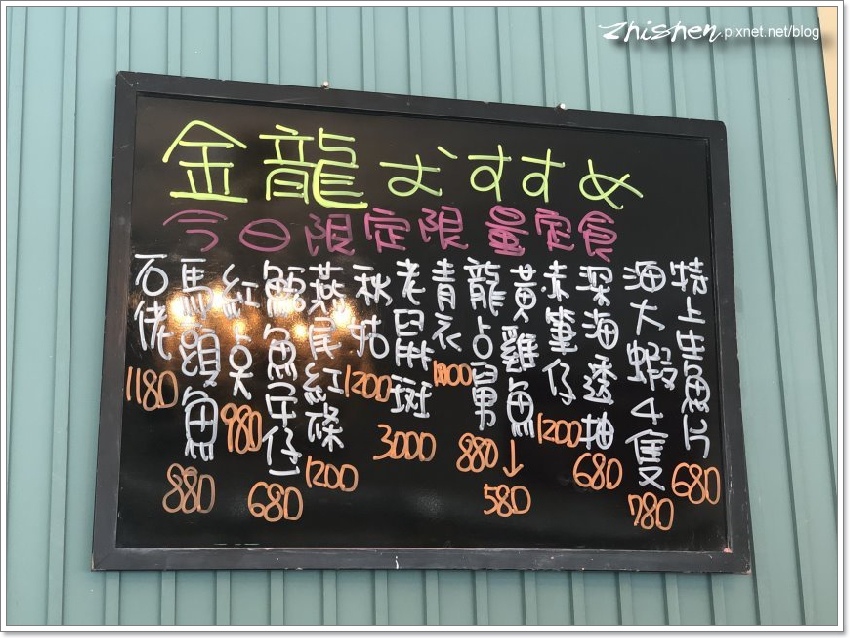 zhishen.pixnet.net/blog
金龍おすすめ
今日限定限量定食
特上生魚片 680
海大蝦4隻 780
深海透抽 680
赤筆仔 1200
黃雞魚 ↓ 580
龍占 880
青衣
老鼠斑 3000
秋姑 1200
燕尾紅條 1200
魚午仔 680
紅 980
馬頭魚 880
石佬 1180